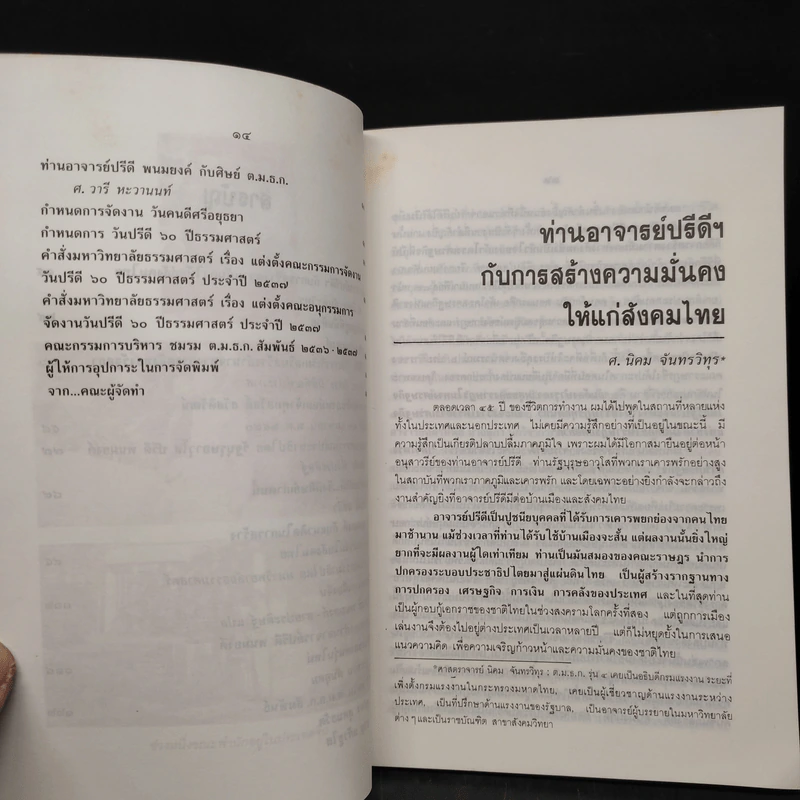 ๑๔
ท่านอาจารย์ปรีดี พนมยงค์ กับศิษย์ ต.ม.ธ.ก.
ศ. วารี หะวานนท์
กำหนดการจัดงาน วันคนดีศรีอยุธยา
กำหนดการ วันปรีดี ๖๐ ปีธรรมศาสตร์
คำสั่งมหาวิทยาลัยธรรมศาสตร์ เรื่อง แต่งตั้งคณะกรรมการจัดงาน
วันปรีดี ๖๐ ปีธรรมศาสตร์ ประจำปี ๒๕๓๗
คำสั่งมหาวิทยาลัยธรรมศาสตร์ เรื่อง แต่งตั้งคณะอนุกรรมการ
จัดงานวันปรีดี ๖๐ ปีธรรมศาสตร์ ประจำปี ๒๕๓๗
คณะกรรมการบริหาร ชมรม ต.ม.ธ.ก. สัมพันธ์ ๒๕๓๖ - ๒๕๓๗
ผู้ให้การอุปการะในการจัดพิมพ์
จาก...คณะผู้จัดทำ
ท่านอาจารย์ปรีดีฯ
กับการสร้างความมั่นคง
ให้แก่สังคมไทย
ศ. นิคม จันทรวิทุร*
ตลอดเวลา ๔๕ ปี ของชีวิตการทำงาน ผมได้ไปพูดในสถานที่หลายแห่ง
ทั้งในประเทศและนอกประเทศ ไม่เคยมีความรู้สึกอย่างที่เป็นอยู่ในขณะนี้ มี
ความรู้สึกเป็นเกียรติปลาบปลื้มภาคภูมิใจ เพราะผมได้มีโอกาสมายืนอยู่ต่อหน้า
อนุสาวรีย์ของท่านอาจารย์ปรีดี ท่านรัฐบุรุษอาวุโสที่พวกเราเคารพรักอย่างสูง
ในสถาบันที่พวกเราภาคภูมิและเคารพรัก และโดยเฉพาะอย่างยิ่งกำลังจะกล่าวถึง
งานสำคัญยิ่งที่อาจารย์ปรีดีมีต่อบ้านเมืองและสังคมไทย
อาจารย์ปรีดีเป็นปูชนียบุคคลที่ได้รับการเคารพยกย่องจากคนไทย
มาช้านาน แม้ช่วงเวลาที่ท่านได้รับใช้บ้านเมืองจะสั้น แต่ผลงานนั้นยิ่งใหญ่
ยากที่จะมีผลงานผู้ใดเท่าเทียม ท่านเป็นมันสมองของคณะราษฎร นำการ
ปกครองระบอบประชาธิปไตยมาสู่แผ่นดินไทย เป็นผู้สร้างรากฐานทาง
การปกครอง เศรษฐกิจ การเงิน การคลังของประเทศ และในที่สุดท่าน
เป็นผู้กอบกู้เอกราชของชาติไทยในช่วงสงครามโลกครั้งที่สอง แต่ถูกการเมือง
เล่นงานจึงต้องไปอยู่ต่างประเทศเป็นเวลาหลายปี แต่ก็ไม่หยุดยั้งในการเสนอ
แนวความคิด เพื่อความเจริญก้าวหน้าและความมั่นคงของชาติไทย
*ศาสตราจารย์ นิคม จันทรวิทุร ; ต.ม.ธ.ก. รุ่น ๔ เคยเป็นอธิบดีกรมแรงงาน ระยะที่
เพิ่งตั้งกรมแรงงานในกระทรวงมหาดไทย, เคยเป็นผู้เชี่ยวชาญด้านแรงงานระหว่าง
ประเทศ, เป็นที่ปรึกษาด้านแรงงานของรัฐบาล, เป็นอาจารย์ผู้บรรยายในมหาวิทยาลัย
ต่าง ๆ และเป็นราชบัณฑิต สาขาสังคมวิทยา